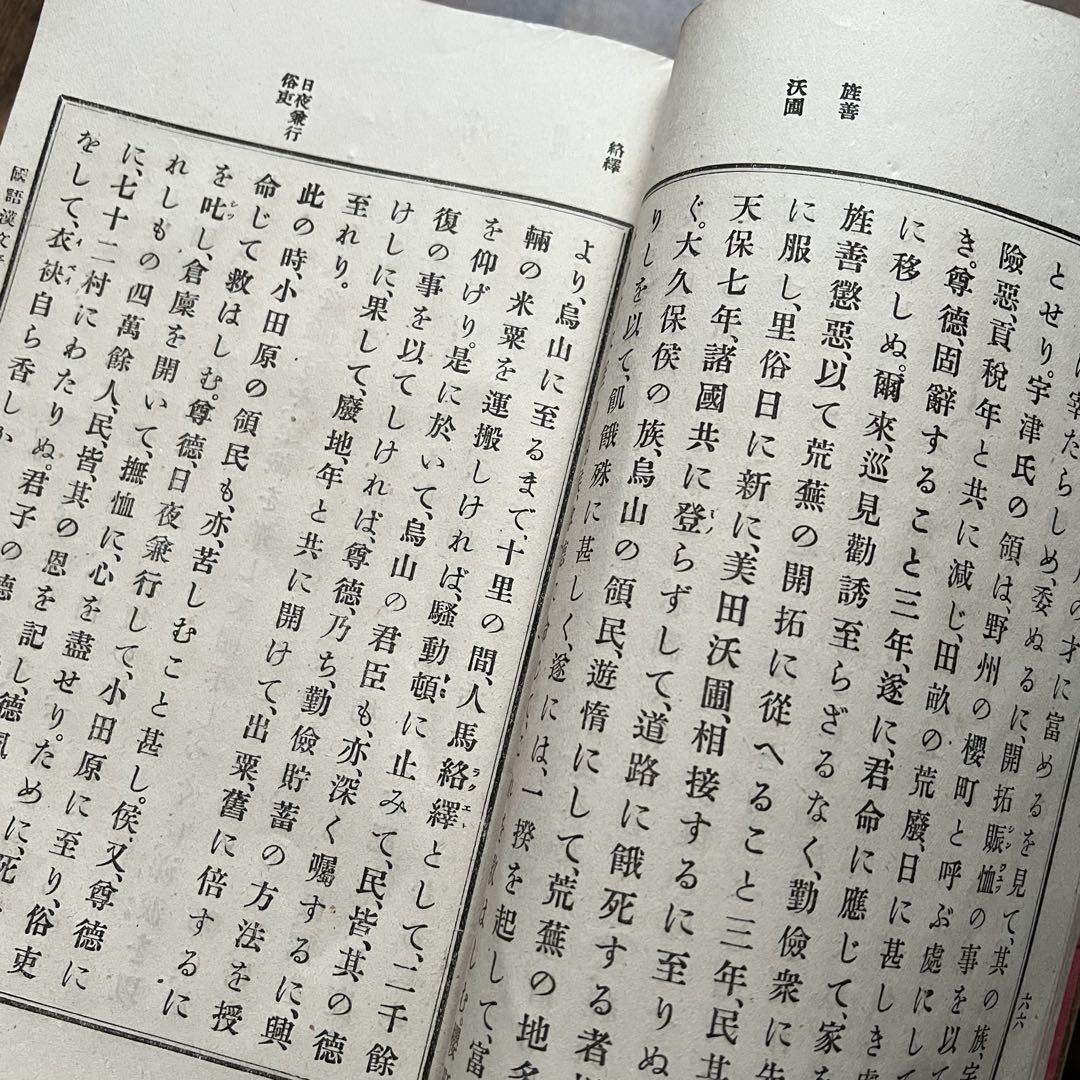 旌善
沃圃
六六
宰たらしめ、委ぬるに、開拓賑恤の事を以て
とせり。宇津氏の領は、野州の櫻町と呼ぶ處にして
險惡、貢稅年と共に減じ、田畝の荒廢、日に甚しき
き。尊德、固辭すること三年、遂に、君命に應じて、家を
に移しぬ。爾來、巡見勸誘至らざるなく、勤儉衆に先
旌善懲惡、以て荒蕪の開拓に從へること三年、民其
に服し、里俗日に新に、美田沃圃、相接するに至りぬ
天保七年、諸國共に登らずして、道路に餓死する者
ぐ。大久保侯の族、烏山の領民、遊惰にして、荒蕪の地多
りしを以て、飢餓殊に甚しく、遂には、一揆を起して、富
絡繹
日夜兼行
俗吏
より、烏山に至るまで、十里の間、人馬絡繹として、二千餘
輛の米粟を運搬しければ、騷動頓に止みて、民、皆、其の德
を仰げり。是に於いて、烏山の君臣も、亦、深く囑するに、興
復の事を以てしければ、尊德、乃ち、勤儉貯蓄の方法を授
けしに、果して、廢地、年と共に開けて、出粟、舊に倍するに
至れり。
此の時、小田原の領民も、亦、苦しむこと甚し。侯、又、尊德に
命じて救はしむ。尊德、日夜兼行して、小田原に至り、俗吏
を叱し、倉廩を開いて、撫恤に、心を盡せり。ために、死
れしもの四萬餘人、民、皆、其の恩を記し、德風
に、七十二村にわたりぬ。君子の德
をして、衣袂自ら香しか
國語漢文